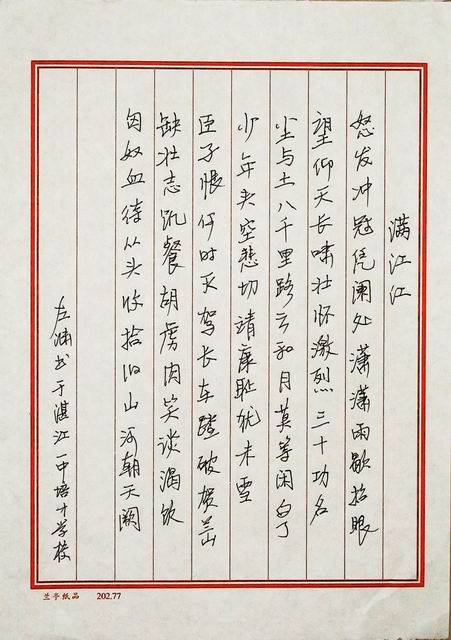 满江红
怒发冲冠凭阑处潇潇雨歇抬眼
望仰天长啸壮怀激烈三十功名
尘与土八千里路云和月莫等闲白了
少年头空悲切靖康耻犹未雪
臣子恨何时灭驾长车踏破贺兰山
缺壮志饥餐胡虏肉笑谈渴饮
匈奴血待从头收拾旧山河朝天阙
书于湛江一中培才学校
兰亭纸品 202.77